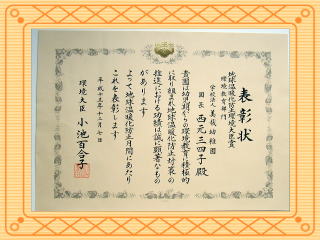 表彰状
地球温暖化防止環境大臣賞
環境教育部門
学校法人 美哉幼稚園
園長 西元三四子殿
貴園は幼児期からの環境教育を積極的
に取り組まれ地球温暖化防止対策の
推進における功績は誠に顕著なもの
があります
よって地球温暖化防止月間にあたり
これを表彰します
平成十五年十二月七日
環境大臣 小池百合子